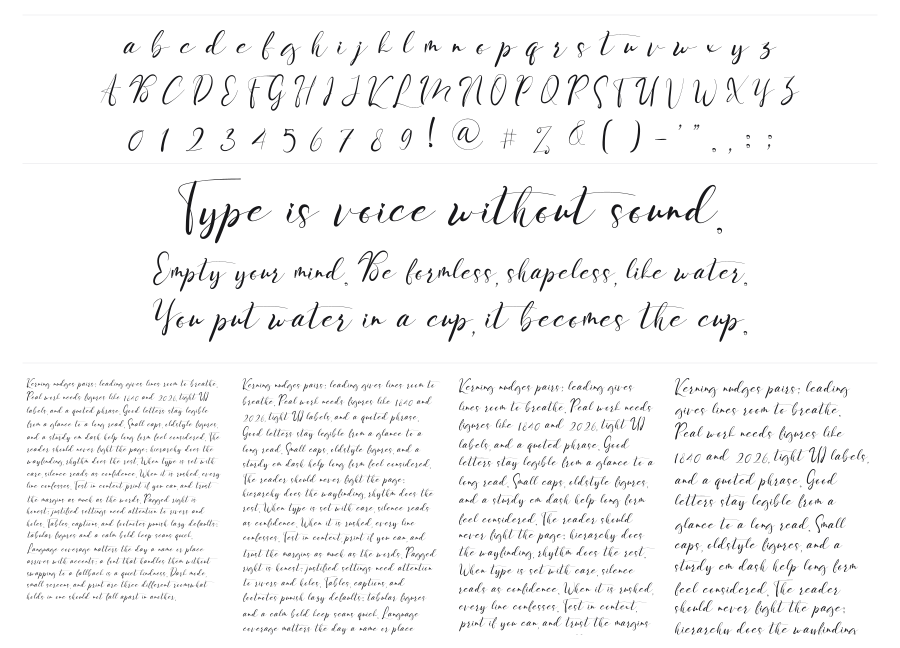 a b c d e f g h i j k l m n o p q r s t u v w x y z
A B C D E F G H I J K L M N O P Q R S T U V W X Y Z
0 1 2 3 4 5 6 7 8 9 ! @ # % & ( ) - ' " . , : ;
Type is voice without sound.
Empty your mind. Be formless, shapeless, like water.
You put water in a cup, it becomes the cup.
Kerning nudges pairs; leading gives lines room to breathe.
Real work needs figures like 1840 and 2026, tight UI
labels, and a quoted phrase. Good letters stay legible
from a glance to a long read. Small caps, oldstyle figures,
and a sturdy em dash help long form feel considered. The
reader should never fight the page; hierarchy does the
wayfinding, rhythm does the rest. When type is set with
care, silence reads as confidence. When it is rushed, every
line confesses. Test in context, print if you can, and trust
the margins as much as the words. Ragged right is
honest; justified settings need attention to rivers and
holes. Tables, captions, and footnotes punish lazy defaults;
tabular figures and a calm bold keep scans quick.
Language coverage matters the day a name or place
arrives with accents; a font that handles them without
swapping to a fallback is a quiet kindness. Dark mode,
small screens, and print are three different rooms; what
holds in one should not fall apart in another.
Kerning nudges pairs; leading gives lines room to
breathe. Real work needs figures like 1840 and
2026, tight UI labels, and a quoted phrase.
Good letters stay legible from a glance to a
long read. Small caps, oldstyle figures, and a
sturdy em dash help long form feel considered.
The reader should never fight the page;
hierarchy does the wayfinding, rhythm does the
rest. When type is set with care, silence reads
as confidence. When it is rushed, every line
confesses. Test in context, print if you can, and
trust the margins as much as the words. Ragged
right is honest; justified settings need attention
to rivers and holes. Tables, captions, and
footnotes punish lazy defaults; tabular figures
and a calm bold keep scans quick. Language
coverage matters the day a name or place
Kerning nudges pairs; leading gives
lines room to breathe. Real work needs
figures like 1840 and 2026, tight UI
labels, and a quoted phrase. Good
letters stay legible from a glance to a
long read. Small caps, oldstyle figures,
and a sturdy em dash help long form
feel considered. The reader should
never fight the page; hierarchy does
the wayfinding, rhythm does the rest.
When type is set with care, silence
reads as confidence. When it is rushed,
every line confesses. Test in context,
print if you can, and trust the margins
Kerning nudges pairs; leading
gives lines room to breathe.
Real work needs figures like
1840 and 2026, tight UI labels,
and a quoted phrase. Good
letters stay legible from a
glance to a long read. Small
caps, oldstyle figures, and a
sturdy em dash help long form
feel considered. The reader
should never fight the page;
hierarchy does the wayfinding,